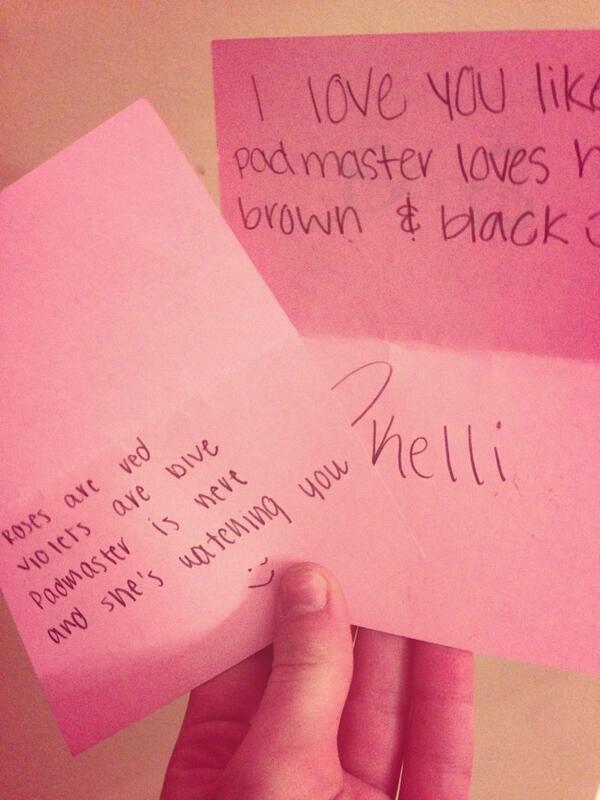 I love you like
padmaster loves
brown & black
Kelli
Roses are red
violets are blue
Padmaster is here
and she's watching you
:)